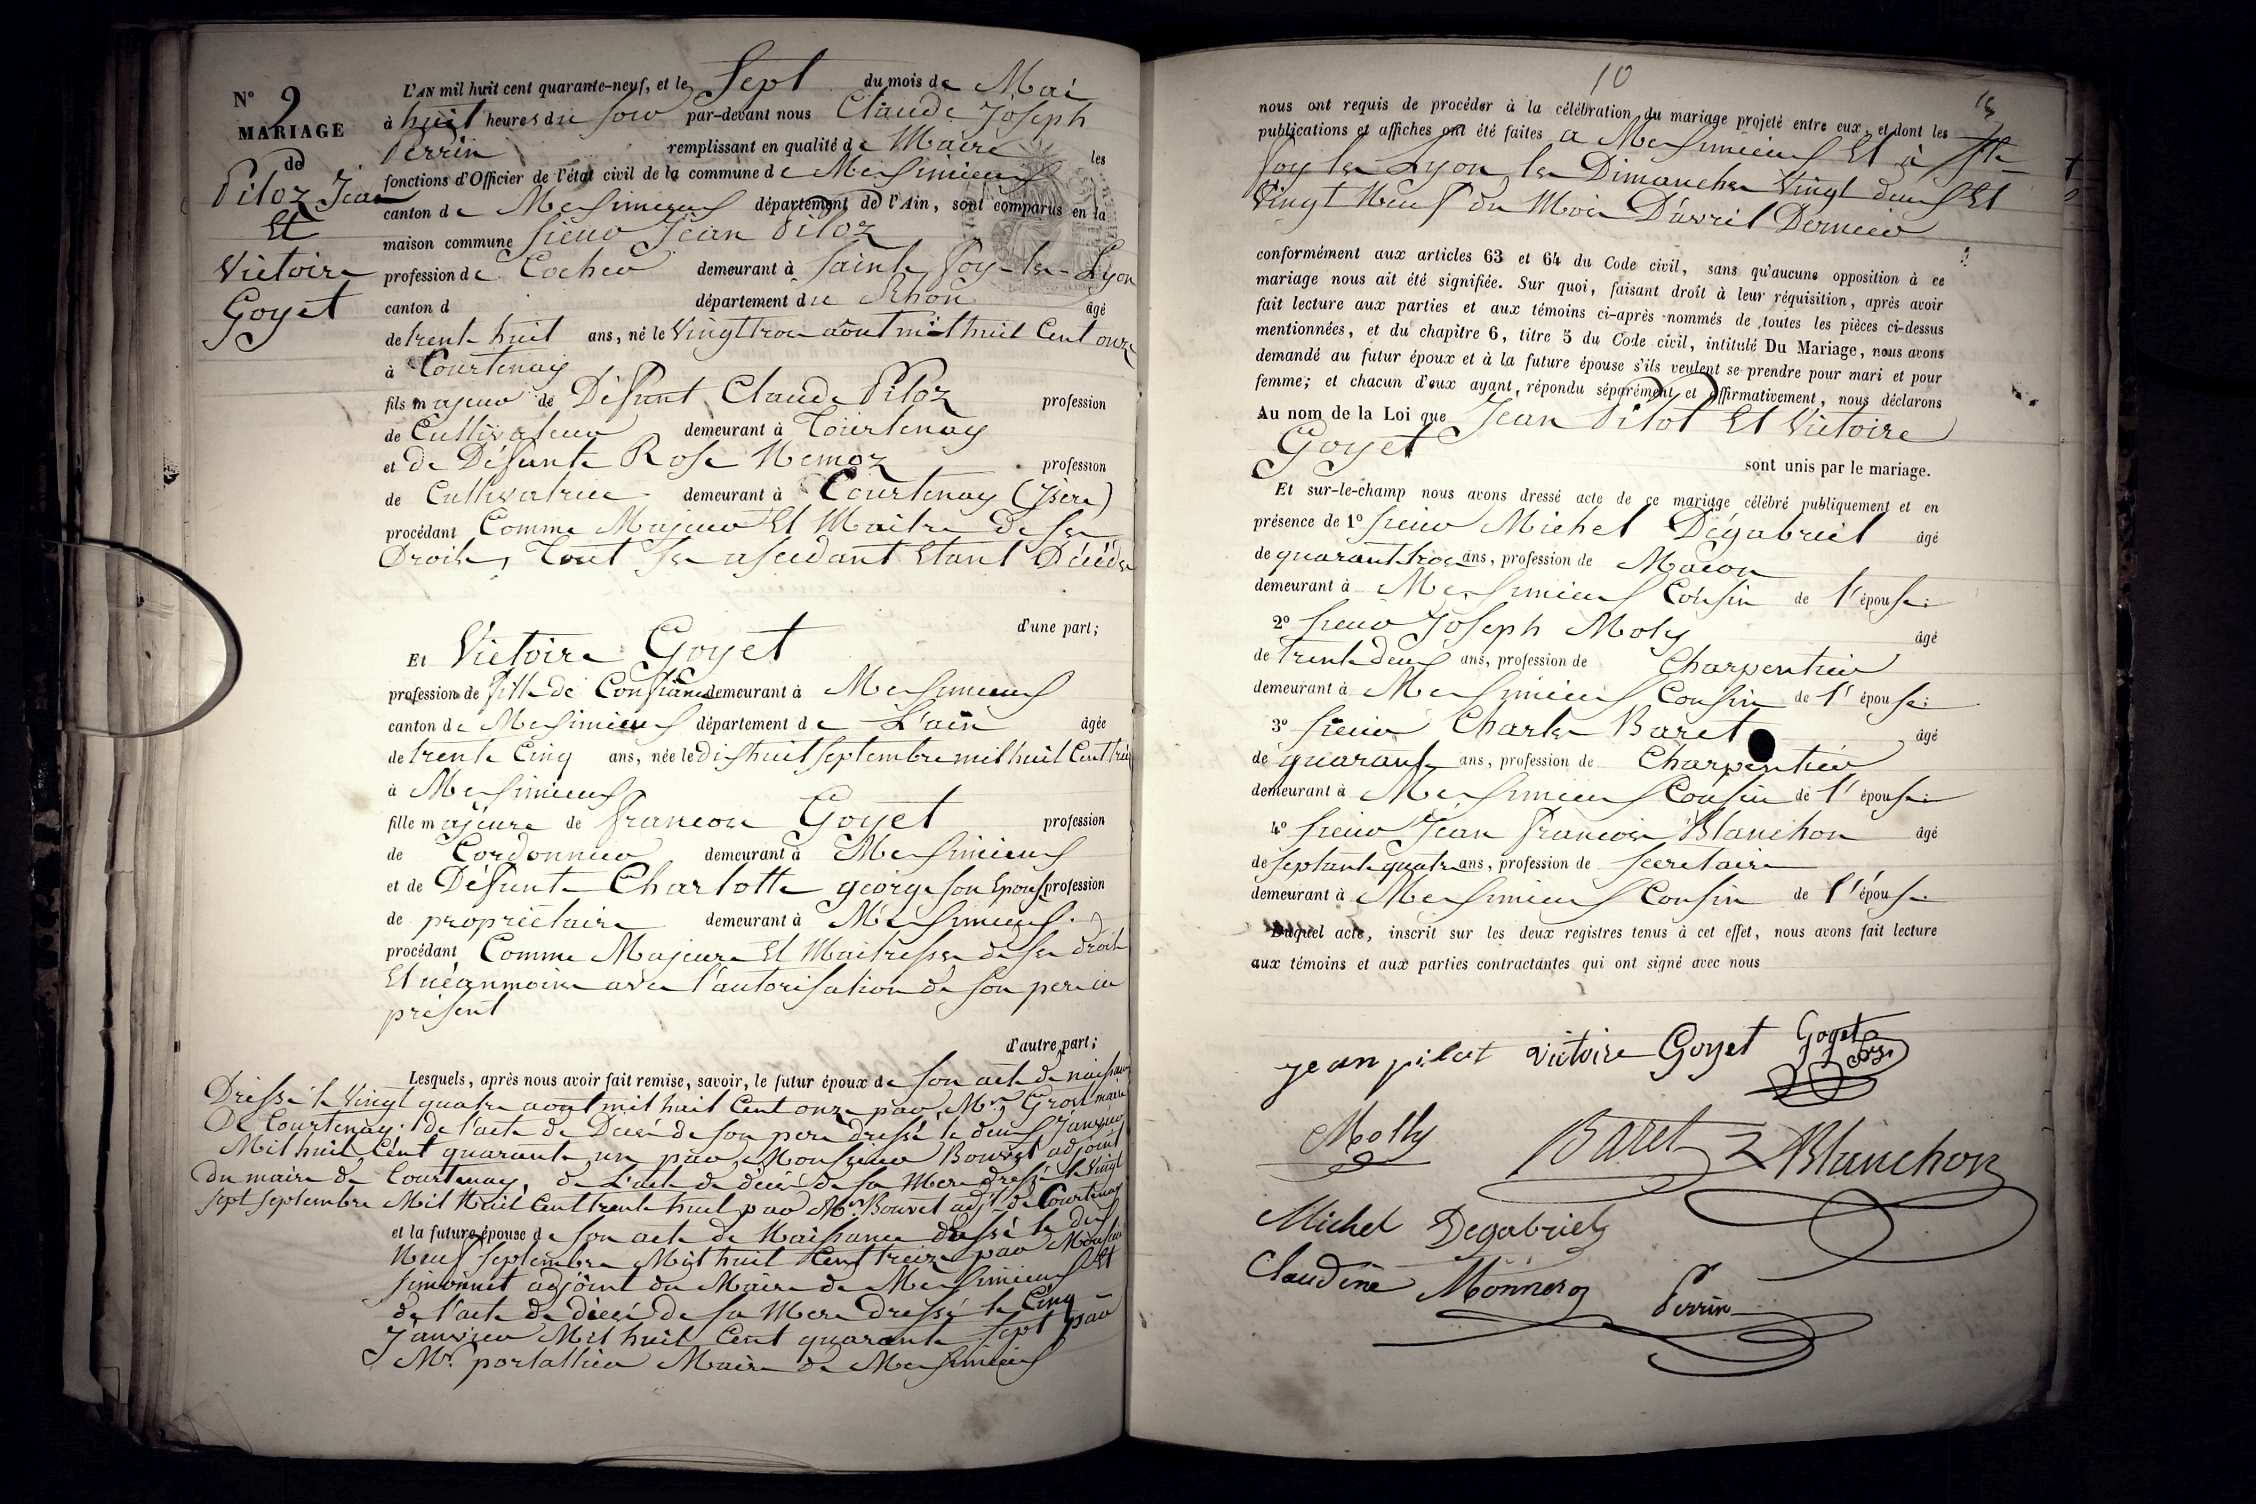 N° 9
MARIAGE
de
Piloz Jean
Et
Victoire
Goyet
L'AN mil huit cent quarante-neuf, et le Sept du mois de Mai
à huit heures du soir par-devant nous Claude Joseph
Perrin remplissant en qualité de Maire les
fonctions d'Officier de l'état civil de la commune de Meximieux
canton de Meximieux département de l'Ain, sont comparus en la
maison commune sieur Jean Piloz
profession de Cocher demeurant à Sainte Foy-les-Lyon
canton d département du Rhône âgé
de trente huit ans, né le Vingt trois août mil huit Cent onze
à Courtenay
fils majeur de Défunt Claude Piloz profession
de Cultivateur demeurant à Courtenay
et de Défunte Rose Nemoz profession
de Cultivatrice demeurant à Courtenay (Isère)
procédant Comme Majeur Et Maitre de ses
Droits, Tout ses ascedant Etant Décédé
d'une part;
Et Victoire Goyet
profession de fille de Confiance demeurant à Meximieux
canton de Meximieux département de L'ain âgée
de trente Cinq ans, née le Dishuit septembre mil huit Cent treize
à Meximieux
fille majeure de françois Goyet profession
de Cordonnier demeurant à Meximieux
et de Défunte Charlotte george son Epouse profession
de propriétaire demeurant à Meximieux
procédant Comme Majeure Et Maitresse de ses droits
Et néanmoins avec l'autorisation de son pere ici
présent
d'autre part;
Lesquels, après nous avoir fait remise, savoir, le futur époux de son acte de naissance
Dressé le Vingt quatre aout mil huit Cent onze par Mr. Gros maire
De Courtenay. de l'acte de Décé de son pere dressé le deux Janvier
Mil huit Cent quarante un par Monsieur Bouvet adjoint
du maire de Courtenay, de L'acte de décé de sa Mere dressé le Vingt
sept septembre Mil Huit Cent trente huit par Mr. Bouvet adjt de Courtenay
et la future épouse de son acte de Naissance dressé le dix
Neuf septembre Mil huit Cent treize par Monsieur
Simonnet adjoint du Maire de Meximieux Et
de l'acte de décé de sa Mere dressé le Cinq
Janvier Mil huit Cent quarante sept par
Mr. portallier Maire de Meximieux
10
nous ont requis de procéder à la célébration du mariage projeté entre eux, et dont les
publications et affiches ont été faites a Meximieux Et à Ste
foy les Lyon les Dimanches Vingt deux Et
Vingt Neuf du Mois D'avril Dernier
conformément aux articles 63 et 64 du Code civil, sans qu'aucune opposition à ce
mariage nous ait été signifiée. Sur quoi, faisant droit à leur réquisition, après avoir
fait lecture aux parties et aux témoins ci-après nommés de toutes les pièces ci-dessus
mentionnées, et du chapitre 6, titre 5 du Code civil, intitulé Du Mariage, nous avons
demandé au futur époux et à la future épouse s'ils veulent se prendre pour mari et pour
femme; et chacun d'eux ayant répondu séparément et affirmativement, nous déclarons
Au nom de la Loi que Jean Pilot Et Victoire
Goyet
sont unis par le mariage.
Et sur-le-champ nous avons dressé acte de ce mariage célébré publiquement et en
présence de 1° sieur Michel Dégabriel âgé
de quarant trois ans, profession de Macon
demeurant à Meximieux Cousin de l'épouse;
2° sieur Joseph Moly âgé
de trente deux ans, profession de Charpentier
demeurant à Meximieux Cousin de l'épouse;
3° sieur Charles Baret âgé
de quarante ans, profession de Charpentier
demeurant à Meximieux Cousin de l'épouse;
4° sieur Jean françois Blanchon âgé
de septante quatre ans, profession de secretaire
demeurant à Meximieux Cousin de l'épouse
Duquel acte, inscrit sur les deux registres tenus à cet effet, nous avons fait lecture
aux témoins et aux parties contractantes qui ont signé avec nous
jean pilot victoire Goyet Goyet
Molly Baret Blanchon
Michel Degabriel
Claudine Monneroz Perrin